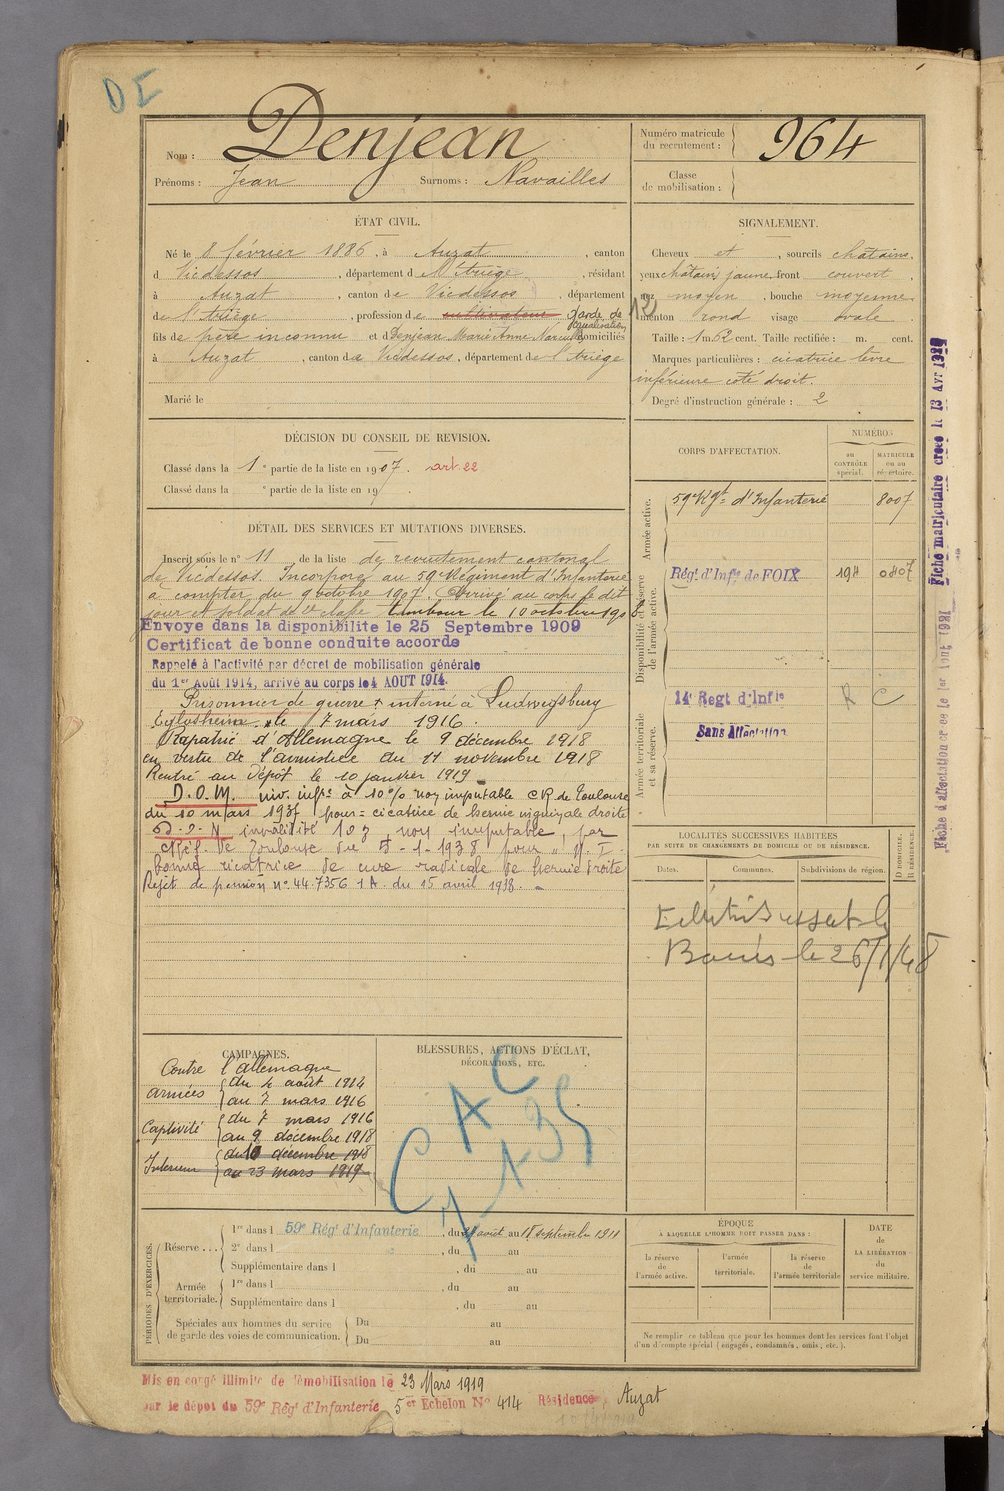 DE
Nom : Denjean
Prénoms : Jean Surnoms : Navailles
Numéro matricule du recrutement : 964
Classe de mobilisation :
ÉTAT CIVIL.
Né le 8 février 1886, à Auzat, canton
d Vicdessos, département de l'Ariège, résidant
à Auzat, canton de Vicdessos, département
de l'Ariège, profession de cultivateur garde de
fils de père inconnu et d Denjean Marie Anne domiciliés
à Auzat, canton de Vicdessos, département de l'Ariège
Marié le
SIGNALEMENT.
Cheveux et, sourcils châtains.
yeux châtain jaune, front couvert
nez moyen, bouche moyenne
menton rond visage ovale
Taille : 1 m. 62 cent. Taille rectifiée : m. cent.
Marques particulières : cicatrice lèvre
inférieure coté droit.
Degré d'instruction générale : 2
DÉCISION DU CONSEIL DE REVISION.
Classé dans la 1e partie de la liste en 1907. art. 22
Classé dans la e partie de la liste en 19
DÉTAIL DES SERVICES ET MUTATIONS DIVERSES.
Inscrit sous le n° 11 de la liste de recrutement cantonal
de Vicdessos. Incorporé au 59e Régiment d'Infanterie
à compter du 9 octobre 1907. Arrivé au corps le dit
jour et soldat de 2e classe tambour le 10 octobre 1908
Envoye dans la disponibilite le 25 Septembre 1909
Certificat de bonne conduite accorde
Rappelé à l'activité par décret de mobilisation générale
du 1er Août 1914, arrivé au corps le 4 AOUT 1914.
Prisonnier de guerre interné à Ludwigsburg
Eglosheim le 7 mars 1916.
Rapatrié d'Allemagne le 9 décembre 1918
en vertu de l'armistice du 11 novembre 1918
Rentré au Dépôt le 10 janvier 1919
D.O.M. inv. infre à 10% non imputable C.R. de Toulouse
du 10 mars 1937 pour = cicatrice de hernie inguinale droite
invalidité 10%, non imputable, par
de Toulouse du 5-1-1938 pour
bonne cicatrice de cure radicale de hernie droite
Rejet de pension n° 44.7356 1 A. du 15 avril 1938.
CORPS D'AFFECTATION.
NUMÉROS
au CONTRÔLE spécial.
MATRICULE ou au répertoire.
Armée active.
59e Rgt d'Infanterie 8007
Disponibilité et réserve de l'armée active.
Régt d'Infie de FOIX 194 0807
Armée territoriale et sa réserve.
14e Regt d'Infie R C
Sans Affectation
Fiche matriculaire créée le 13 Avr 1929
LOCALITÉS SUCCESSIVES HABITÉES
PAR SUITE DE CHANGEMENTS DE DOMICILE OU DE RÉSIDENCE.
Dates.
Communes.
Subdivisions de région.
D DOMICILE. R RÉSIDENCE.
le 26/1/48
CAMPAGNES.
Contre l'Allemagne
armées du 4 août 1914
au 7 mars 1916
Captivité du 7 mars 1916
au 9 décembre 1918
Intérieur du 10 décembre 1918
au 23 mars 1919
BLESSURES, ACTIONS D'ÉCLAT,
DÉCORATIONS, ETC.
CAC
PÉRIODES D'EXERCICES.
Réserve ...
1re dans l 59e Régt d'Infanterie, du août au 15 septembre 1911
2e dans l, du au
Supplémentaire dans l, du au
Armée territoriale.
1re dans l, du au
Supplémentaire dans l, du au
Spéciales aux hommes du service
de garde des voies de communication.
Du au
Du au
ÉPOQUE
À LAQUELLE L'HOMME DOIT PASSER DANS :
la réserve de l'armée active.
l'armée territoriale.
la réserve de l'armée territoriale
DATE
de
LA LIBÉRATION
du
service militaire.
Ne remplir ce tableau que pour les hommes dont les services font l'objet
d'un décompte spécial (engagés, condamnés, omis, etc.).
Mis en congé illimité de démobilisation le 23 Mars 1919
par le dépot du 59e Régt d'Infanterie 5e Echelon No 414 Résidence Auzat